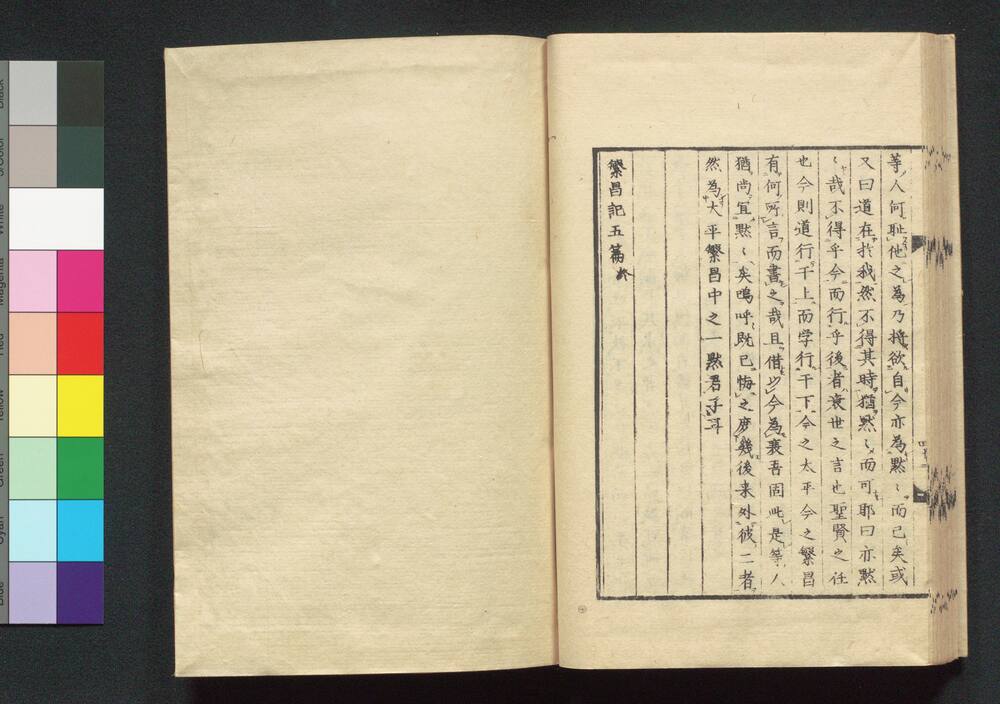 等人何耻他之為乃將欲自今亦為默〻而已矣或
又曰道在於我然不得其時猶默〻而可耶曰亦默
〻哉不得乎今而行乎後者衰世之言也聖賢之任
也今則道行于上而学行于下今之太平今之繁昌
有何所言而書之哉且借以今為衰吾固此是等人
猶尚宜默〻矣嗚呼既已悔之庶幾後来外彼二者
然為大平繁昌中之一默君子耳
繁昌記五篇終
Black
3/Color
White
Magenta
Red
Yellow
Green
Cyan
Blue